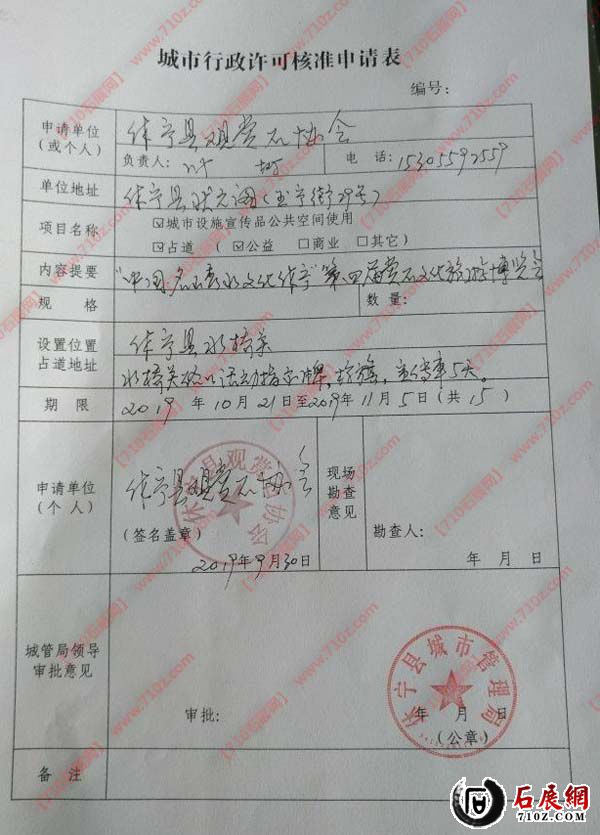 城市行政许可核准申请表
编号:
申请单位
(或个人)
休宁县观赏石协会
负责人:
电 话: 15305592559
单位地址
休宁县状元阁(玉宁街29号)
项目名称
☑城市设施宣传品公共空间使用
☑占道 (☑公益 □商业 □其它)
内容提要
"中国名山秀水文化休宁"第四届赏石文化旅游博览会
规 格
数量:
设置位置
占道地址
休宁县水榜关
水榜关 活动指示牌、 旗、宣传 5天。
期 限
2019 年 10 月 21 日至 2019 年 11 月 5 日(共 15 )
申请单位
(个 人)
休宁县观赏石协会
(签名盖章)
2019年9月30日
休宁县观赏石协会
现场
勘查
意见
勘查人:
年 月 日
城管局领导
审批意见
审批:
年 月 日
(公章)
休宁县城市管理局
备 注
【710石展网】www.710z.com
石展網
710Z.COM